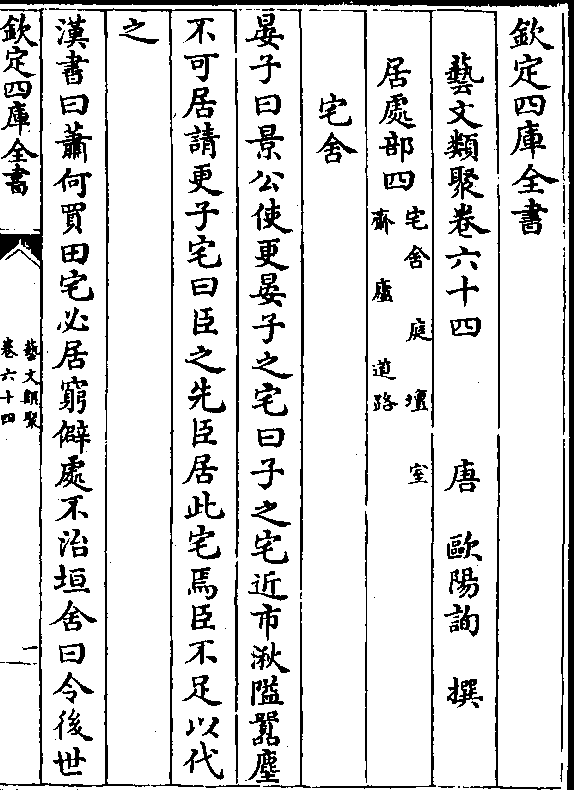 欽定四庫全書
藝文類聚卷六十四 唐 歐陽詢 撰
居處部四 宅舍 庭 壇 室
齋 廬 道路
宅舍
晏子曰景公使更晏子之宅曰子之宅近市湫隘囂塵
不可居請更子宅曰臣之先臣居此宅焉臣不足以代
之
漢書曰蕭何買田宅必居窮僻處不治垣舍曰令後世
欽定四庫全書
藝文類聚
卷六十四
一